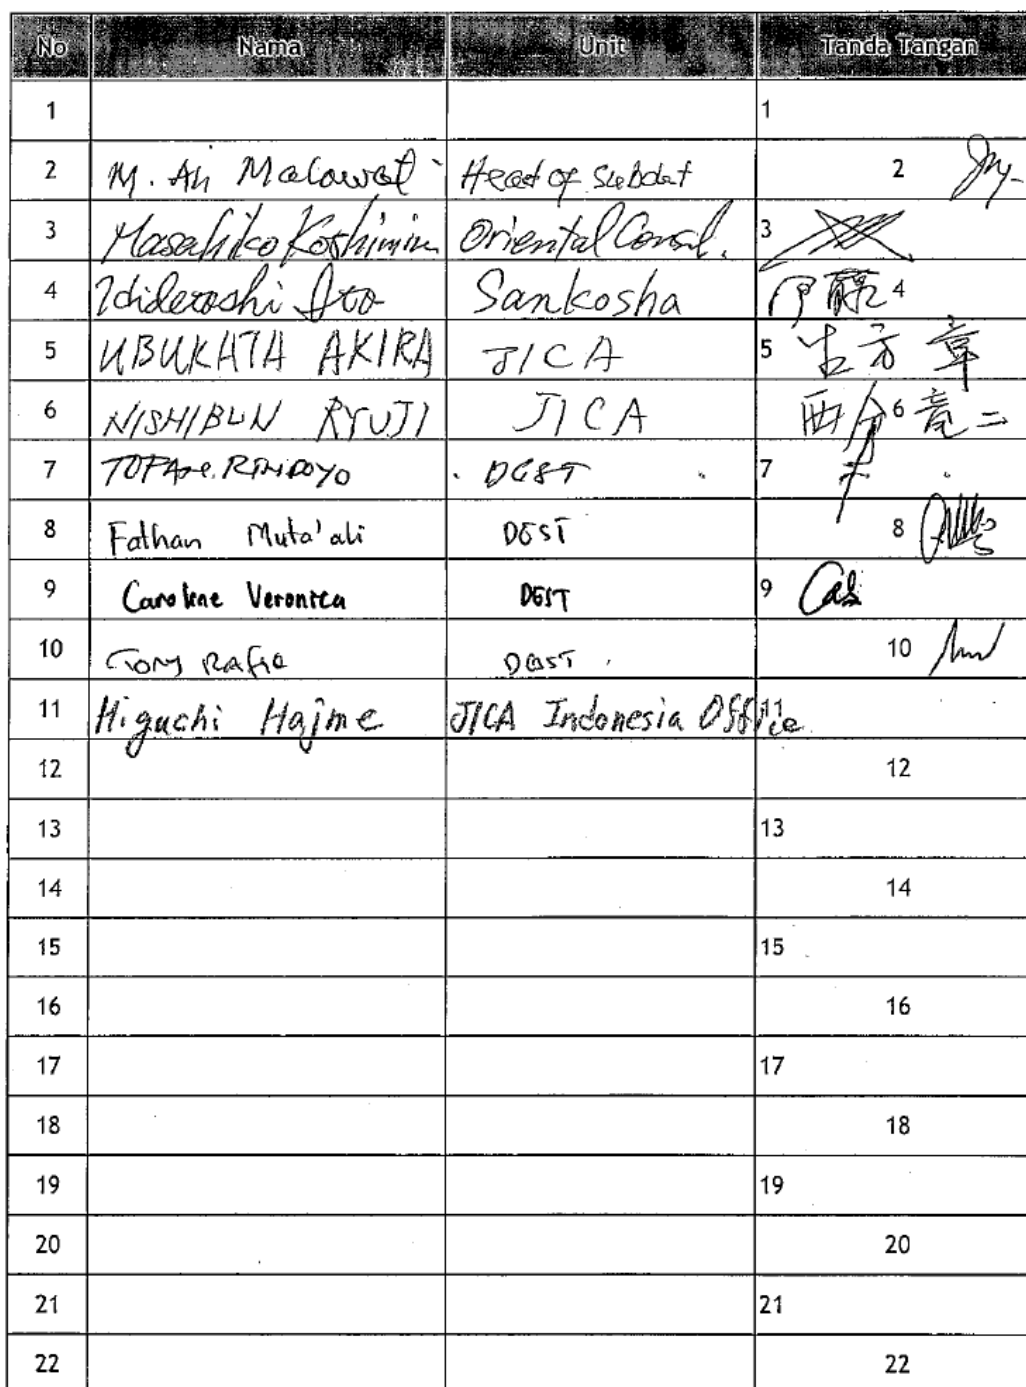 No Nama Unit Tanda Tangan
1 1
2 M. Ali Malawat Head of Subdat 2
3 Masahiko Koshimizu Oriental Consul. 3
4 Hideroshi Ito Sankosha 伊藤 4
5 UBUKATA AKIRA JICA 5 生方 章
6 NISHIBUN RYUJI JICA 西分 6 竜二
7 DGST 7
8 Fathan Muta'ali DGST 8
9 Caroline Veronica DGST 9
10 Tony Rafie DGST 10
11 Higuchi Hajime JICA Indonesia Office 11
12 12
13 13
14 14
15 15
16 16
17 17
18 18
19 19
20 20
21 21
22 22